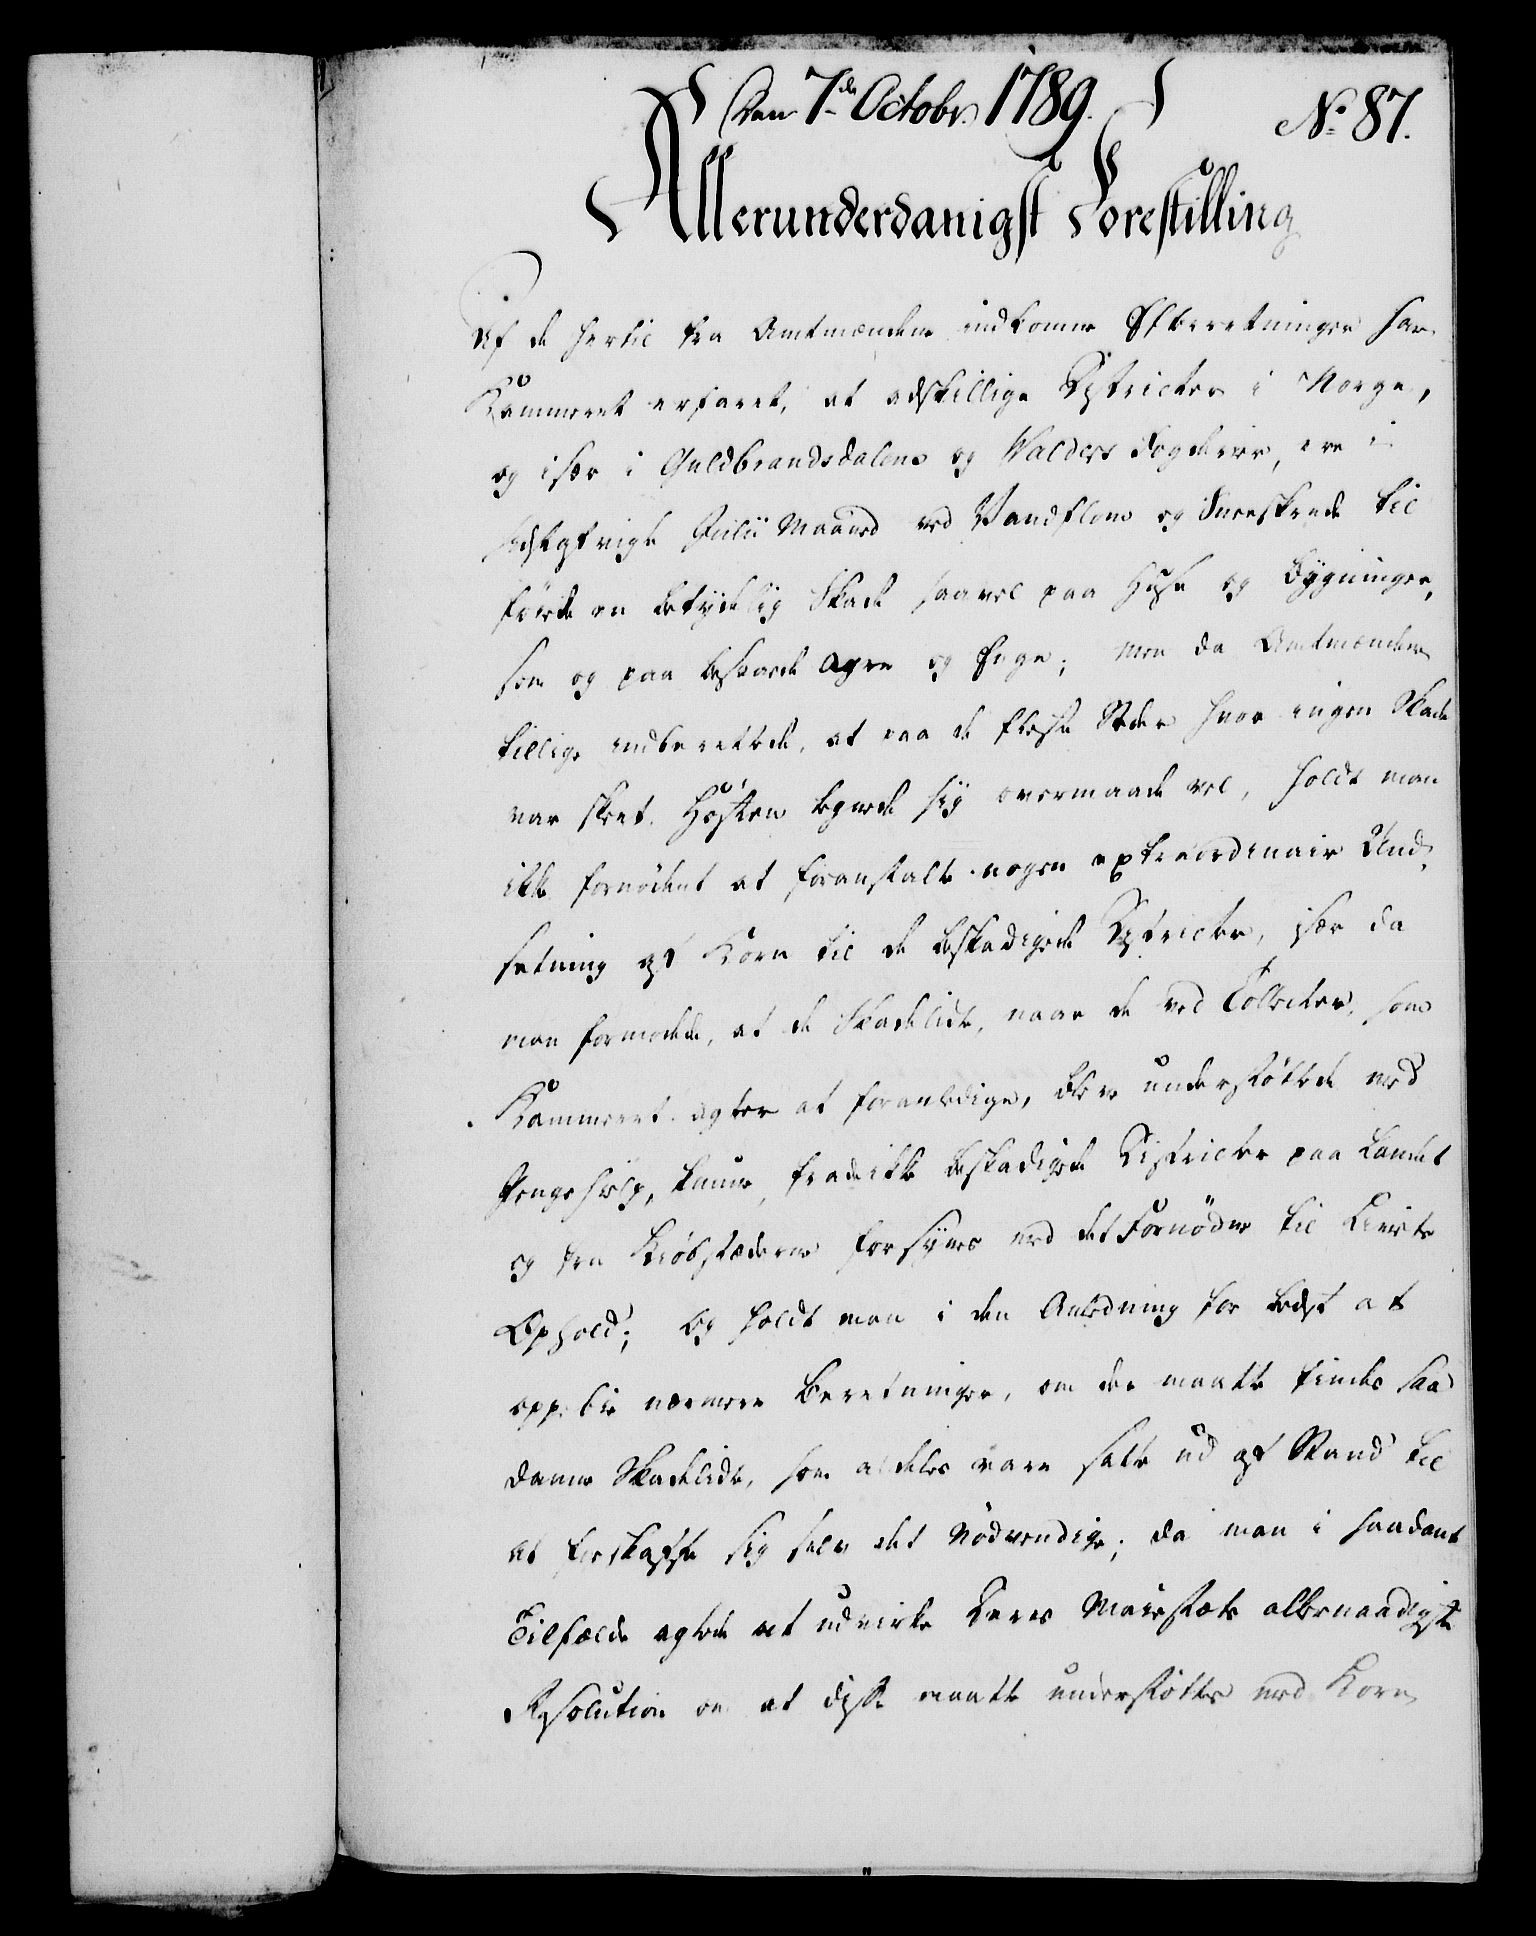 Den 7de Octobr 1789.
No 87.
Allerunderdanigst Forestilling
Af de hertil fra Amtmændene indkomne Efterretninger har
Kammeret erfaret, at adskillige Districter i Norge,
og især i Guldbrandsdalens og Walders Fogderier, ere i
sidstafvigte Julii Maaned ved Vandflom og Sneeskrede til
föiede en betydelig Skade saavel paa Huse og Bygninger,
som og paa besaaede Agre og Enge; men da Amtmændene
tillige indberettede, at paa de fleste Steder hvor ingen Skade
var skeet, Høsten tegnede sig overmaade vel, holdt man
ikke fornødent at foranstalte nogen extraordinair Und-
sætning af Korn til de beskadigede Districter, især da
man formodede, at de Skadelidte, naar de ved Collecter, som
Kammeret agter at foranledige, bleve understøttede med
Penge hielp, kunne fra de ikke beskadigede Districter paa Landet
og fra Kiøbstæderne forsynes med det Fornødne til Livets
Ophold; Og holdt man i den Anledning for bedst at
oppebie nærmere Beretninger, om der maatte findes saa-
danne Skadelidte, som aldeles vare satte ud af Stand til
at forskaffe sig selv det Nødvendige; da man i saadant
Tilfælde agtede at udvirke Deres Majestæts allernaadigste
Resolution om at disse maatte understøttes med Korn